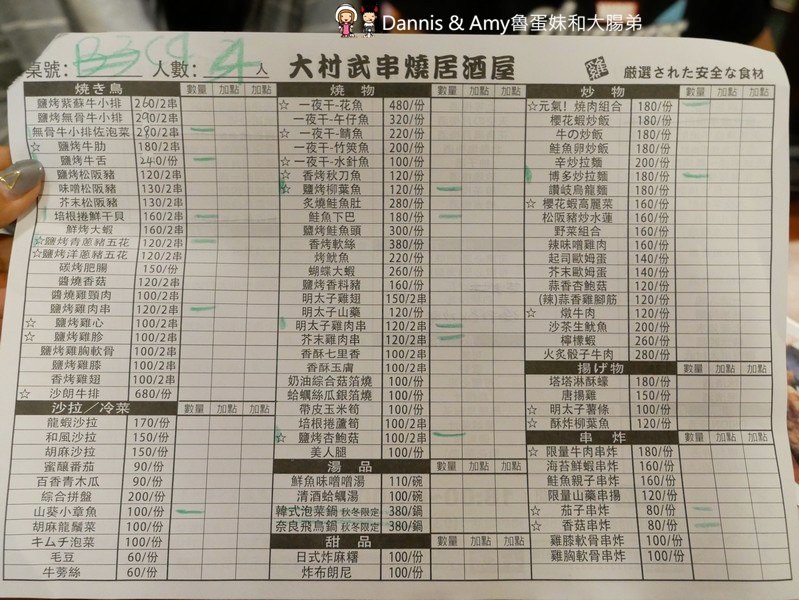 Dannis & Amy魯蛋妹和大腸弟
桌號: B3 人數: 4 人 大村武串燒居酒屋 雞 厳選された安全な食材
燒き鳥 數量 加點 加點
鹽烤紫蘇牛小排 260/2串
鹽烤無骨牛小排 290/2串
無骨牛小排佐泡菜 280/2串
☆ 鹽烤牛肋 180/2串
鹽烤牛舌 240/份
鹽烤松阪豬 120/2串
味噌松阪豬 130/2串
芥末松阪豬 130/2串
培根捲鮮干貝 160/2串
鮮烤大蝦 160/2串
☆鹽烤青蔥豬五花 120/2串
☆鹽烤洋蔥豬五花 120/2串
碳烤肥腸 150/份
醬燒香菇 120/2串
醬燒雞頸肉 100/2串
鹽烤雞肉串 120/2串
☆ 鹽烤雞心 100/2串
☆ 鹽烤雞胗 100/2串
鹽烤雞胸軟骨 100/2串
鹽烤雞膝 100/2串
香烤雞翅 100/2串
☆ 沙朗牛排 680/份
沙拉／冷菜 數量 加點 加點
龍蝦沙拉 170/份
和風沙拉 150/份
胡麻沙拉 150/份
蜜釀番茄 90/份
百香青木瓜 90/份
綜合拼盤 200/份
山葵小章魚 100/份
胡麻龍鬚菜 100/份
キムチ泡菜 100/份
毛豆 60/份
牛蒡絲 60/份
燒物 數量 加點 加點
☆ 一夜干-花魚 480/份
一夜干-午仔魚 320/份
☆ 一夜干-鯖魚 220/份
一夜干-竹筴魚 200/份
☆ 一夜干-水針魚 100/份
☆ 香烤秋刀魚 120/份
☆ 鹽烤柳葉魚 120/份
炙燒鮭魚肚 280/份
鮭魚下巴 180/份
鹽烤鮭魚頭 300/份
香烤軟絲 380/份
烤魷魚 220/份
蝴蝶大蝦 260/份
鹽烤香料豬 160/份
明太子雞翅 150/2串
明太子山藥 120/份
明太子雞肉串 120/2串
芥末雞肉串 120/2串
香酥七里香 100/2串
香酥玉膚 100/2串
奶油綜合菇箔燒 100/份
蛤蠣絲瓜銀箔燒 100/份
帶皮玉米筍 100/份
培根捲蘆筍 100/2串
☆ 鹽烤杏鮑菇 100/2串
美人腿 100/份
湯品 數量 加點 加點
鮮魚味噌噌湯 110/碗
清酒蛤蠣湯 100/碗
韓式泡菜鍋 秋冬限定 380/鍋
奈良飛鳥鍋 秋冬限定 380/鍋
甜品 數量 加點 加點
日式炸麻糬 100/份
炸布朗尼 100/份
炒物 數量 加點 加點
☆元氣！燒肉組合 180/份
櫻花蝦炒飯 180/份
牛の炒飯 180/份
鮭魚卵炒飯 180/份
辛炒拉麵 200/份
博多炒拉麵 160/份
讚岐烏龍麵 160/份
☆ 櫻花蝦高麗菜 160/份
松阪豬炒水蓮 160/份
野菜組合 160/份
辣味噌雞肉 160/份
起司歐姆蛋 140/份
芥末歐姆蛋 140/份
蒜香杏鮑菇 120/份
(辣)蒜香雞腳筋 120/份
☆ 燉牛肉 120/份
沙茶生魷魚 200/份
檸檬蝦 260/份
火炙骰子牛肉 280/份
揚げ物 數量 加點 加點
塔塔淋酥蠔 180/份
唐揚雞 150/份
☆ 明太子薯條 100/份
☆ 酥炸柳葉魚 120/份
串炸 數量 加點 加點
☆ 限量牛肉串炸 180/份
海苔鮮蝦串炸 160/份
鮭魚親子串炸 160/份
限量山藥串揚 120/份
☆ 茄子串炸 80/份
☆ 香菇串炸 80/份
雞膝軟骨串炸 100/份
雞胸軟骨串炸 100/份